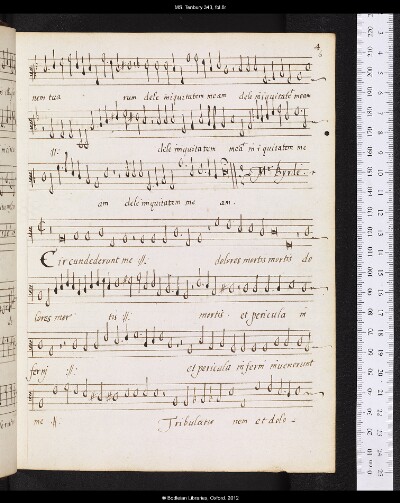 MS. Tenbury 343, fol.5r
4
nem tua rum dele iniquitatem meam dele iniquitatē meam
:||: dele iniquitatem meā iniquitatem me
Mr Byrde.
am dele iniquitatem me am.
Circundederunt me :||: dolores mortis mortis do
lores mor tis :||: mortis et pericula in
ferni :||: et pericula inferni invenerunt
me :||: Tribulatio nem et dolo
© Bodleian Libraries, Oxford, 2012